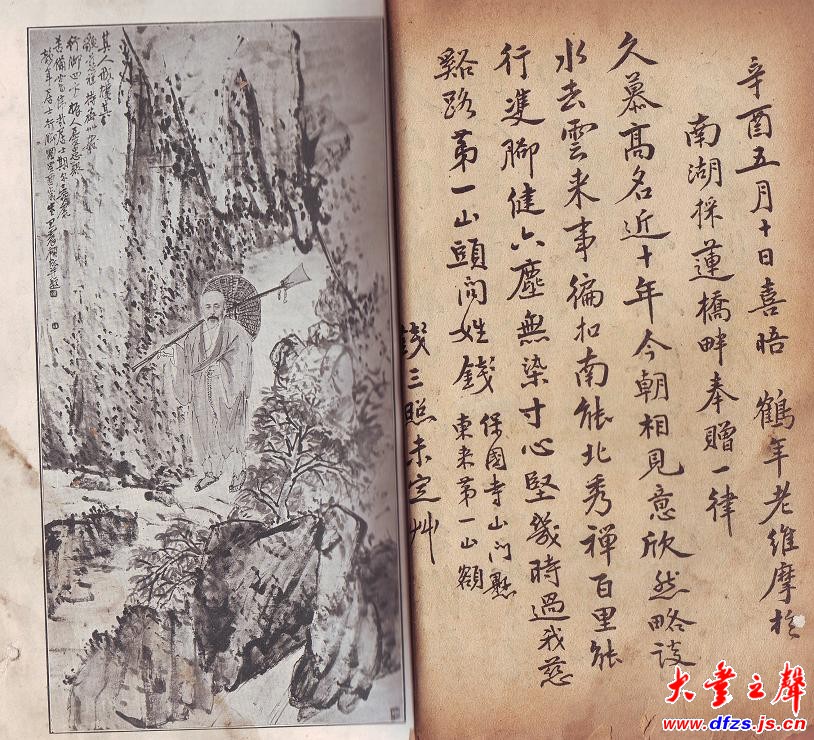 辛酉五月十日喜晤 鶴年老維摩於
南湖採蓮橋畔奉贈一律
久慕高名近十年今朝相見意欣然略談
水去雲来事徧扣南能北秀禅百里能
行雙腳健六塵無染寸心堅幾時過我慈
谿路第一山頭问姓錢
保國寺山门懸
東来第一山額
錢三照未定艸
其人
行脚四
居士
年居士行脚圖
大之聲
www.dfzs.js.cn